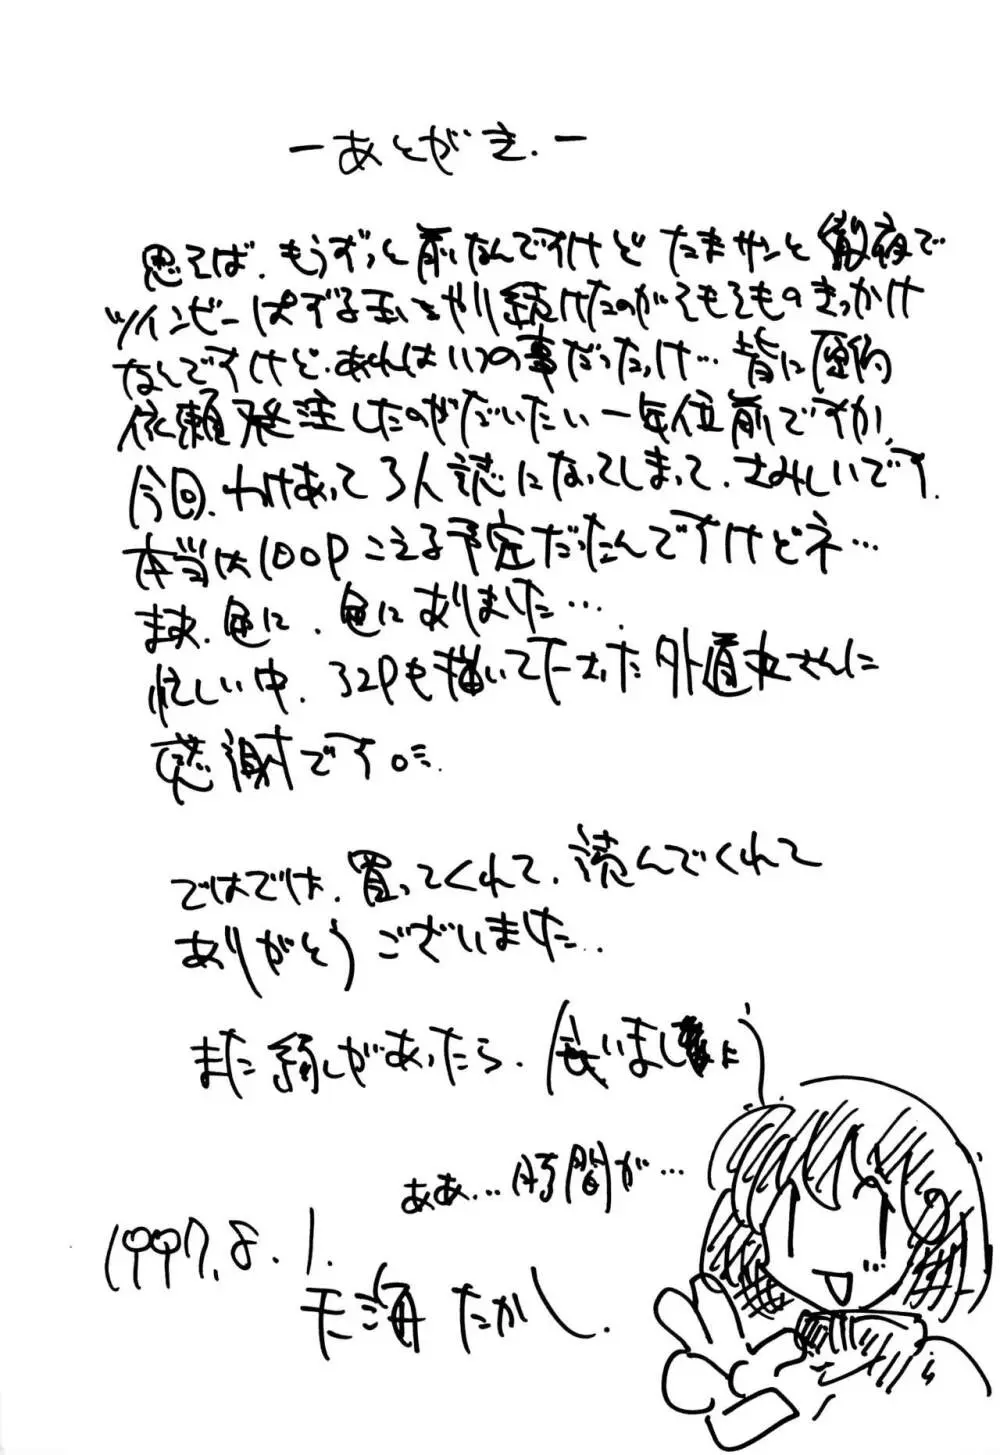 ーあとがき.ー
思えば、もうずっと前なんですけど たまサンと徹夜で
ツインビーぱずる玉をやり続けたのがそもそものきっかけ
なんですけど、あれはいつの事だったっけ… 皆に原稿
依頼発注したのがだいたい一年位前ですか、
今回、わけあって3人誌になってしまって、さみしいです。
本当は100Pこえる予定だったんですけどネ…
まあ、色々、色々ありました…
忙しい中、32Pも描いて下さった外道丸さんに
感謝です。
ではでは、買ってくれて、読んでくれて
ありがとうございました。
また縁があったら、会いましょ
ああ…時間が…
1997.8.1.
天海たかし.